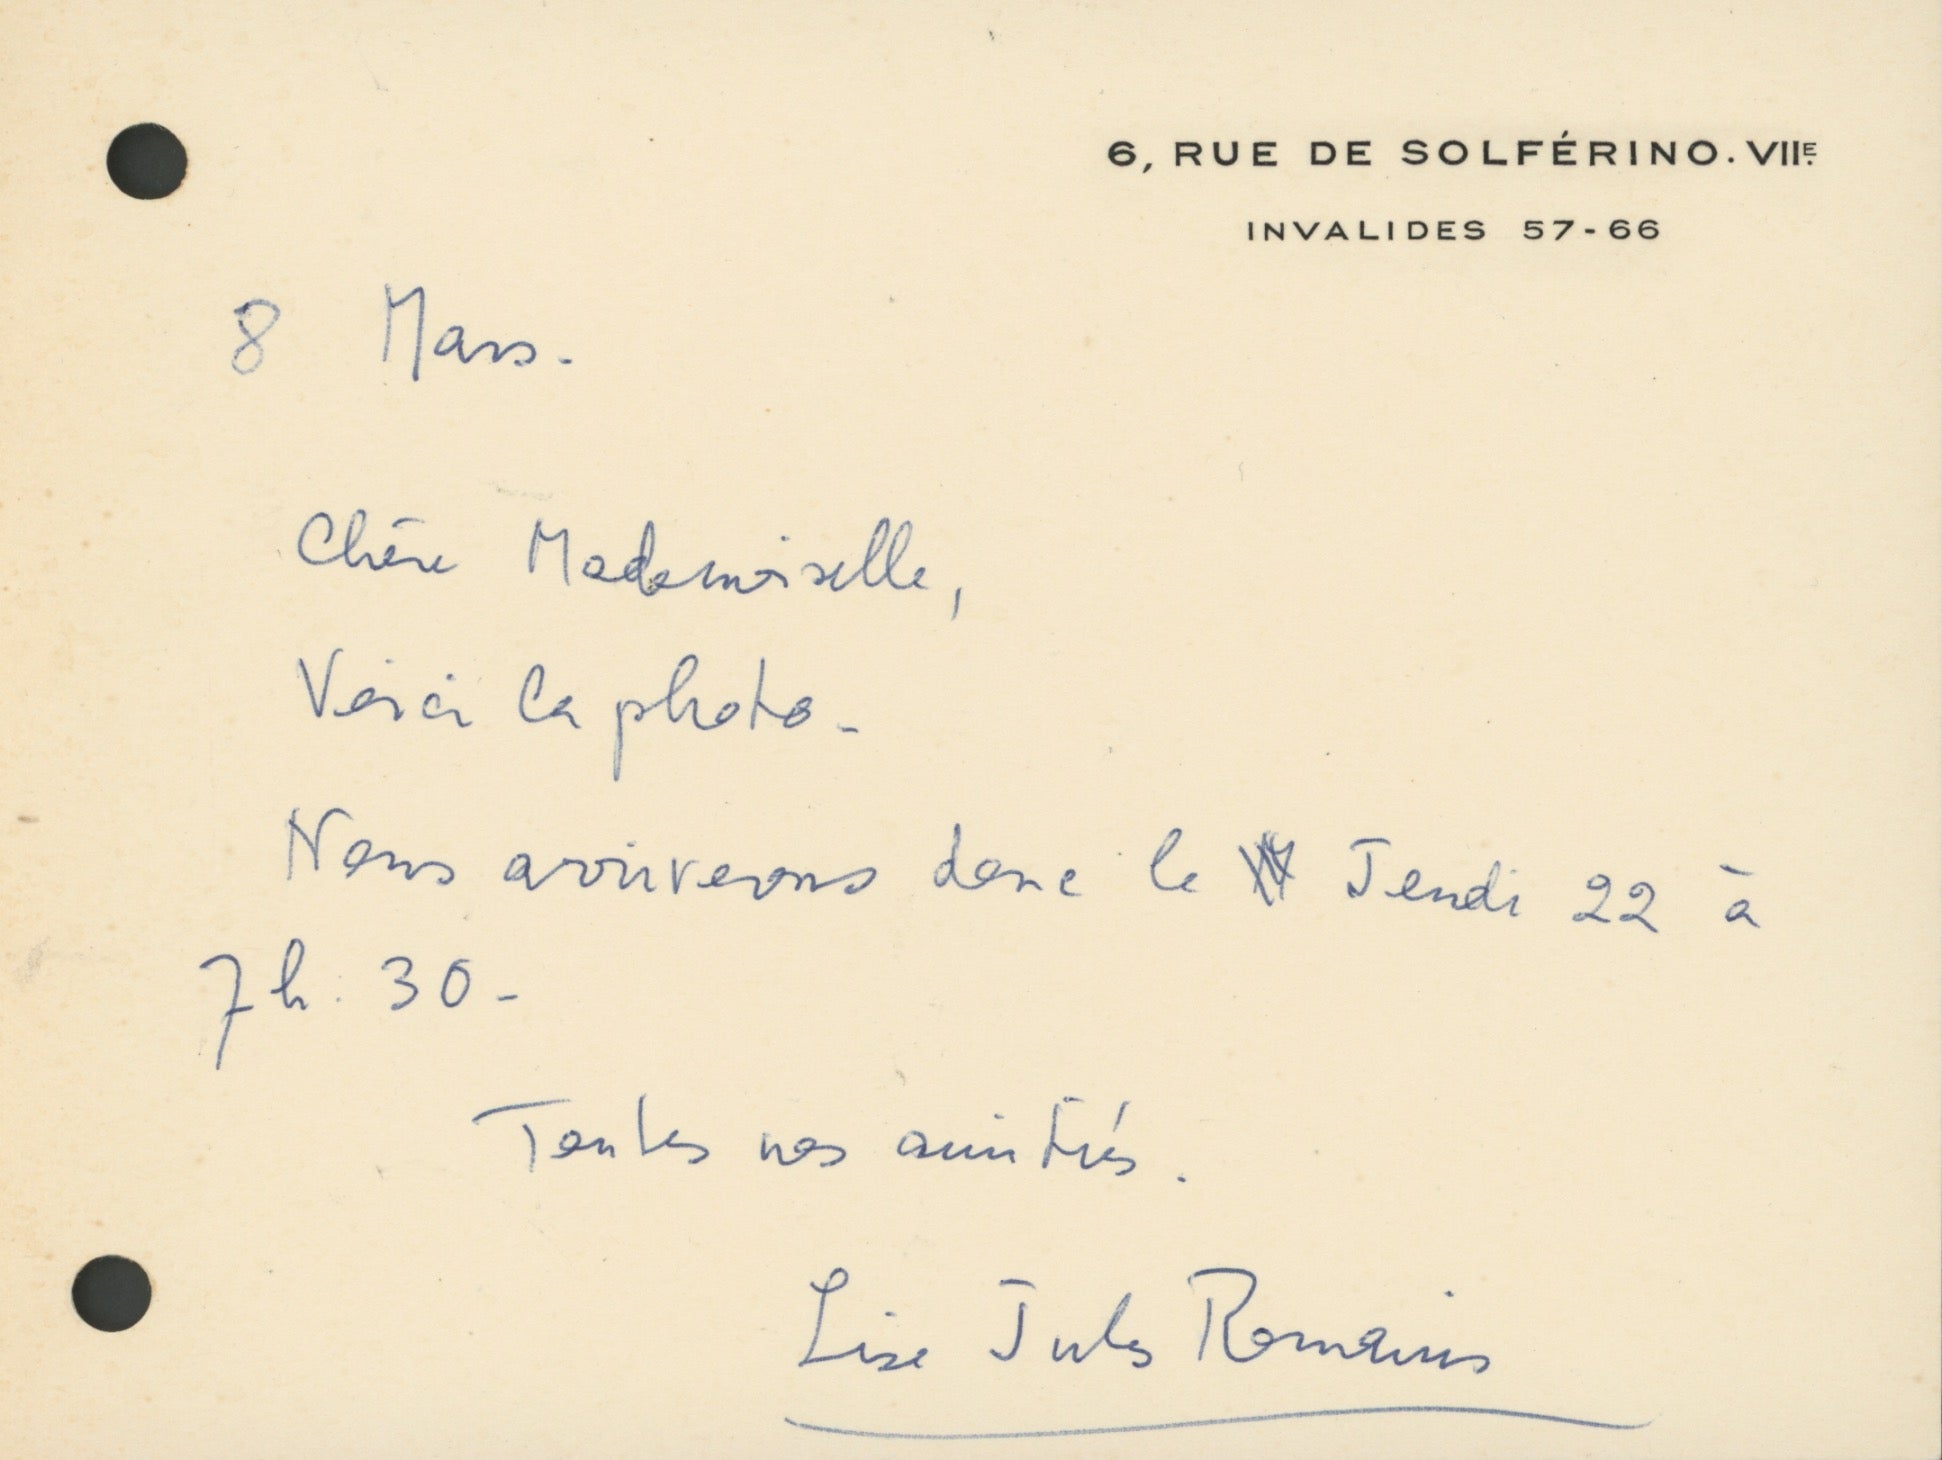 6, RUE DE SOLFÉRINO. VIIE.
INVALIDES 57-66
8 Mars.
Chère Mademoiselle,
Voici la photo -
Nous arriverons donc le Jeudi 22 à
7 h. 30 -
Toutes nos amitiés.
Lise Jules Romains